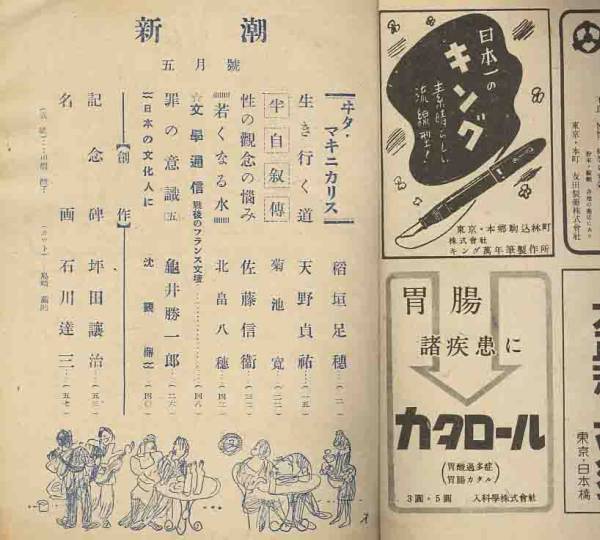 新潮
五月號
ヰタ・マキニカリス 稲垣足穗…(二)
生き行く道 天野貞祐…(一五)
半自叙傳 菊池寛…(二二)
性の觀念の惱み 佐藤信衞…(三二)
若くなる水 北畠八穗
☆文學通信 戰後のフランス文壇…(四八)
罪の意識(五) 龜井勝一郎…(二六)
日本の文化人に 沈
【創作】
記念碑 坪田讓治…(五三)
名画 石川達三…(五七)
日本一の
キング
素晴らしい
流線型!
東京・本郷駒込林町
株式會社
キング萬年筆製作所
胃腸
諸疾患に
カタロール
(胃酸過多症
胃腸カタル)
3圓・5圓
入科學株式會社
東京・本町 友田製藥株式會社
東京・日本橋